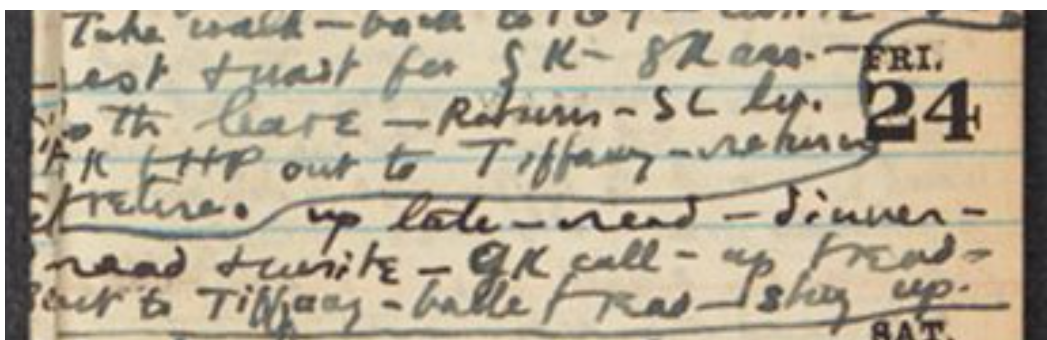 Take walk - back to
rest & wait for GK - GK arr. - FRI.
th leave - Return - SC lv. 24
K & HP out to Tiffany - return
& retire. up late - read - dinner -
read & write - GK call - up & read -
out to Tiffany - & read - stay up.
SAT.